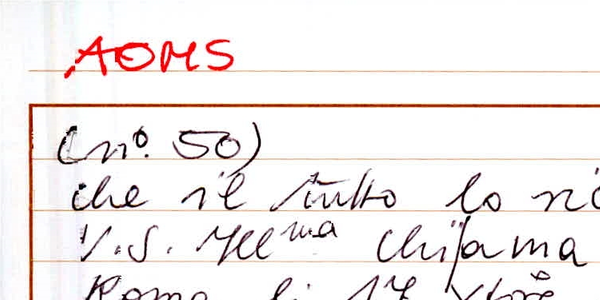 AOMS
(n°. 50)
che il tutto lo
V.S. Ill^ma chi
Roma li 17